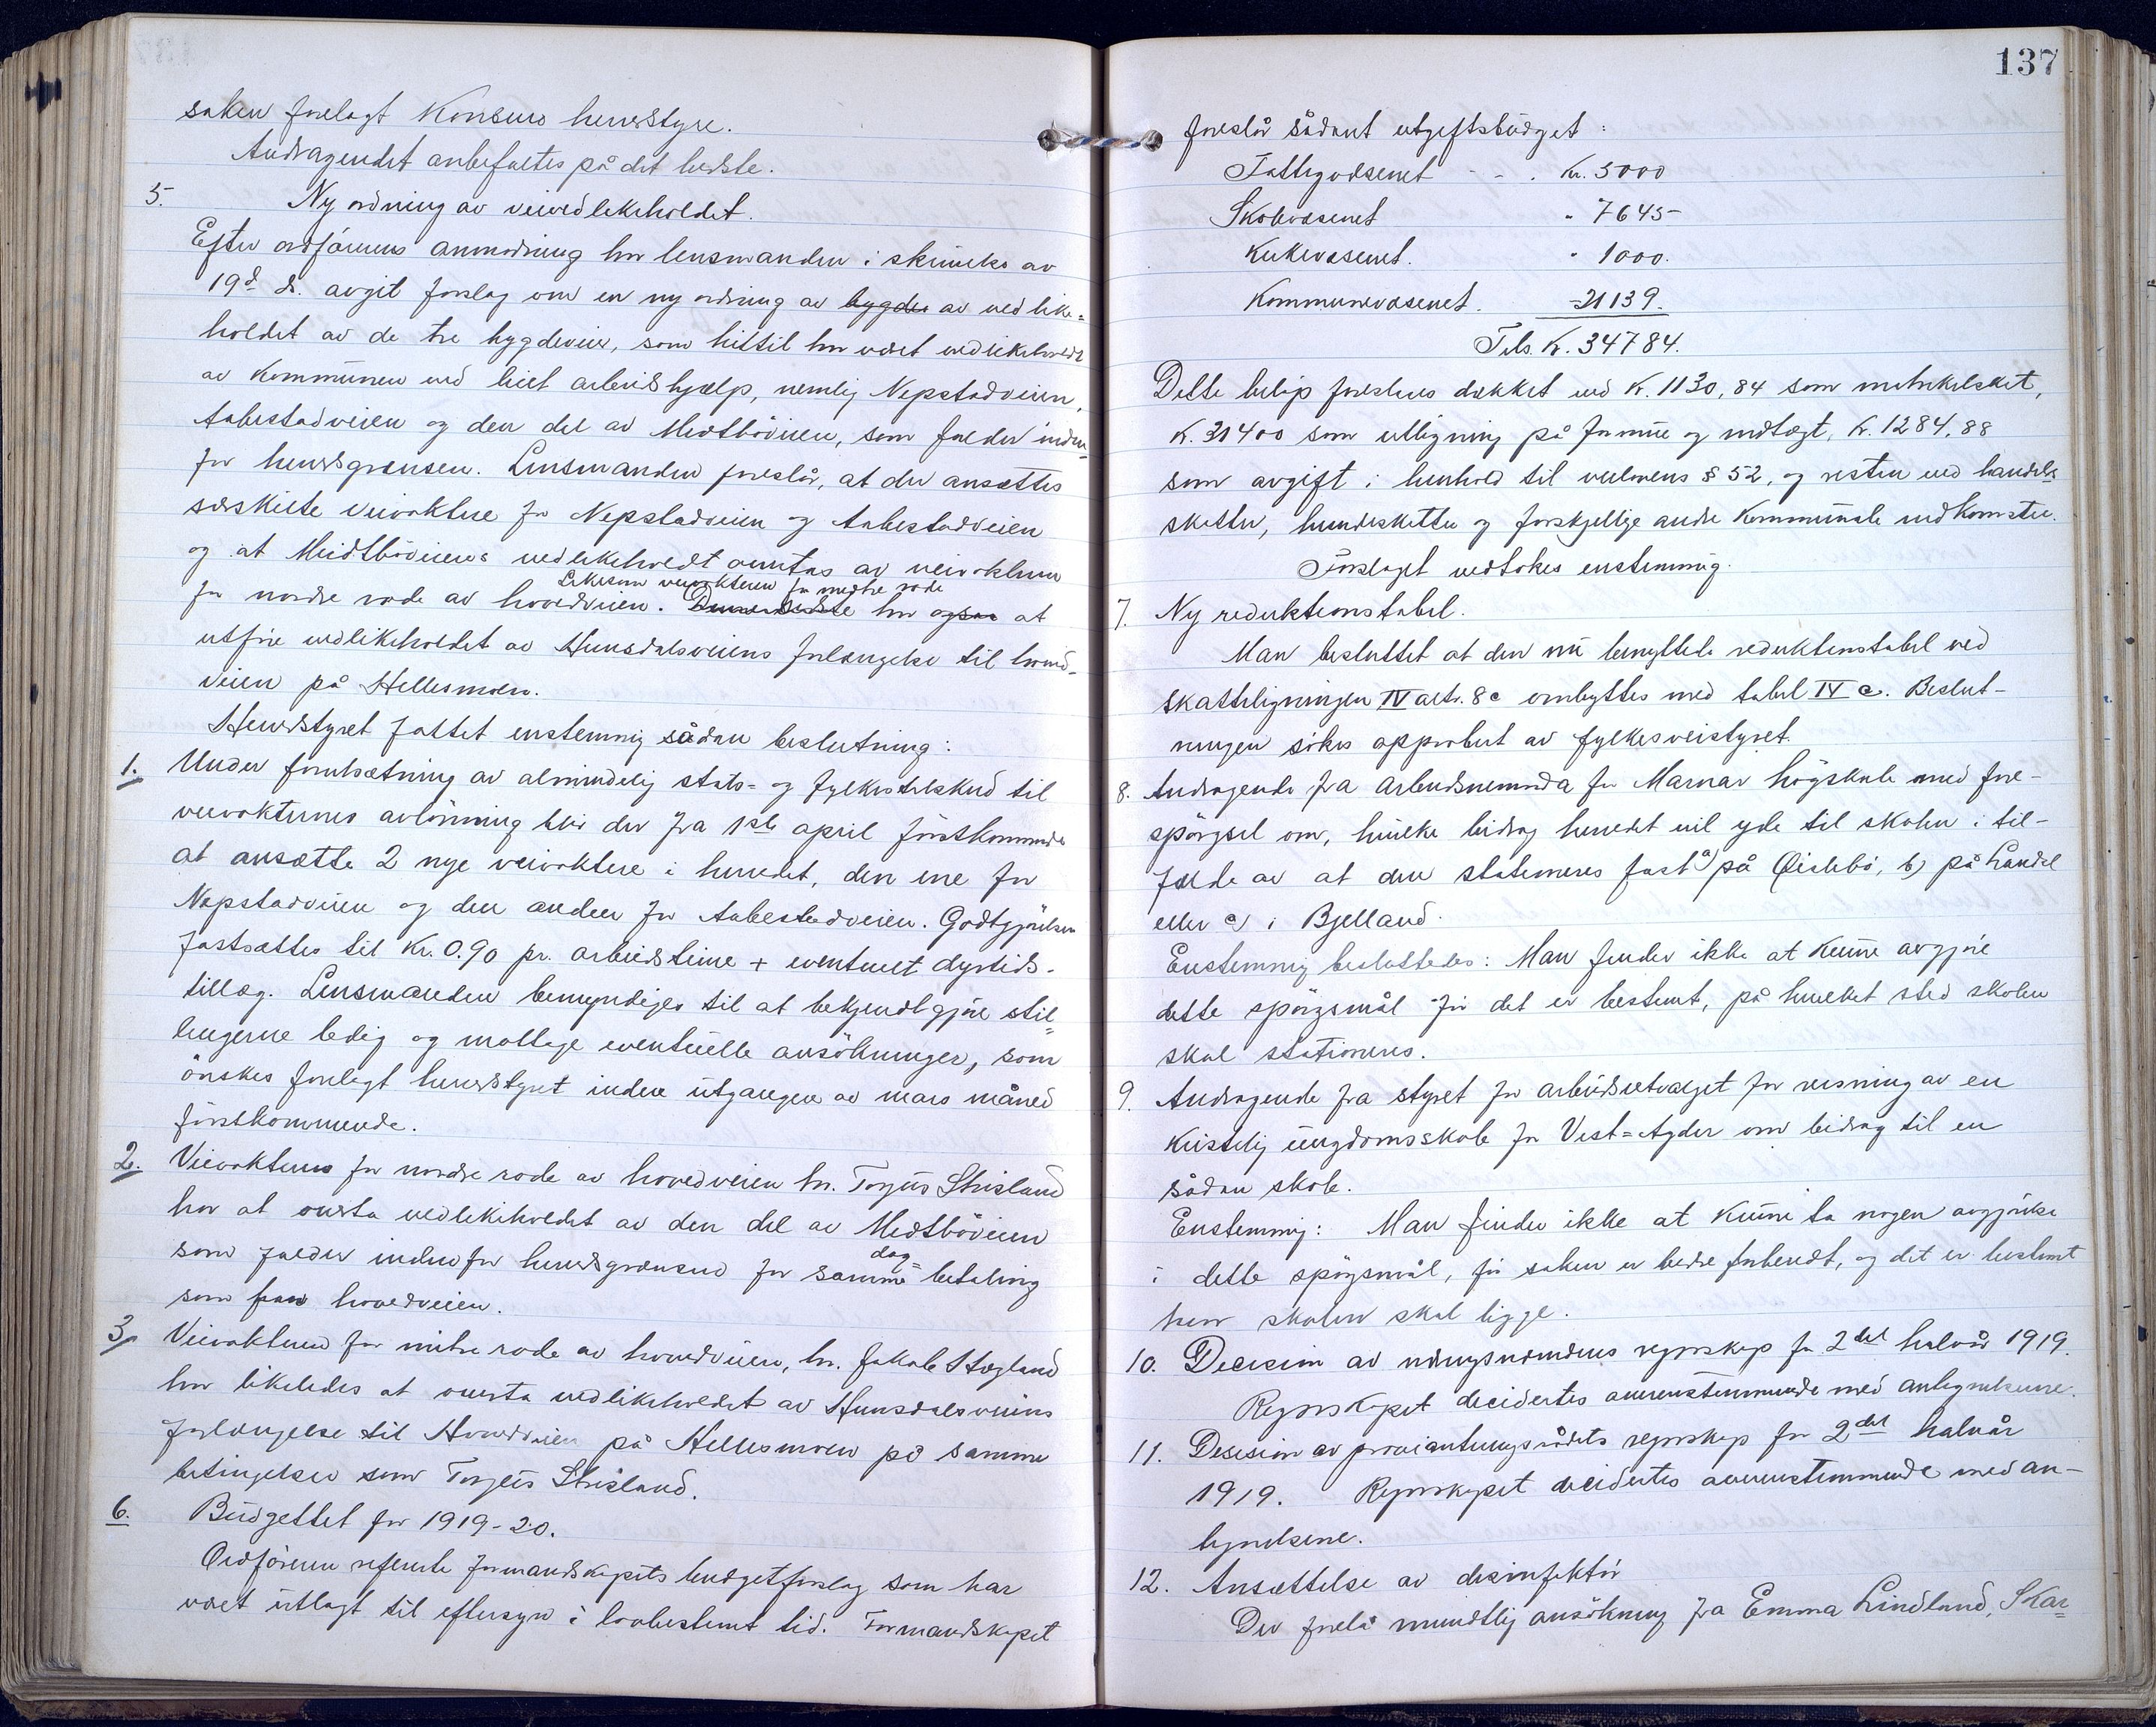 saken forelagt Konsmo herredstyre.
Andragendet anbefaltes på det bedste.
5. Ny ordning av veivedlikeholdet.
Efter ordførerens anmodning har lensmanden i skrivelse av
19de ds. avgit forslag om en ny ordning av bygdes av vedlike=
holdet av de tre bygdeveier, som hittil har været vedlikeholdt
av kommunen ved leiet arbeidshjælp, nemlig Nepstadveien,
Aabestadveien og den del av Midtbøveien, som falder inden-
for herredsgrænsen. Lensmanden foreslår, at der ansættes
særskilte veivoktere for Nepstadveien og Aabestadveien
og at Midtbøveiens vedlikehold overtas av veivokteren
Likesom veivokteren for midtre rode
for nordre rode av hovedveien. har også at
utføre vedlikeholdet av Hunsdalsveiens forlængelse til hoved-
veien på Hellesmoen.
Herredstyret fattet enstemmig sådan beslutning:
1. Under forutsætning av almindelig stats- og fylkestilskud til
veivokternes avlønning blir der fra 1ste april førstkommende
at ansætte 2 nye veivoktere i herredet, den ene for
Nepstadveien og den anden for Aabestadveien. Godtgjørelsen
fastsættes til Kr. 0.90 pr. arbeidstime + eventuelt dyrtids-
tillæg. Lensmanden bemyndiges til at bekjendtgjøre stil=
lingerne ledig og mottage eventuelle ansøkninger, som
ønskes forelagt herredstyret inden utgangen av mars måned
førstkommende.
2. Veivokteren for nordre rode av hovedveien hr. Torjus Strisland
har at overta vedlikeholdet av den del av Midtbøveien
som falder indenfor herredsgrænsen for samme dag=betaling
som for hovedveien.
3. Veivokteren for mitre rode av hovedveien, hr. Jakob Høgland
har likeledes at overta vedlikeholdet av Hunsdalsveiens
forlængelse til Hovedveien på Hellesmoen på samme
betingelser som Torjus Strisland.
6. Budgettet for 1919-20.
Ordføreren refererte formandskapets budgetforslag som har
været utlagt til eftersyn i lovbestemt tid. Formandskapet
137
foreslår sådant utgiftsbudget:
Fattigvæsenet - - . Kr. 5000
Skolevæsenet " 7645-
Kirkevæsenet. " 1000.
Kommunevæsenet. - 21139.
Tils. Kr. 34784.
Dette beløp foreslaes dækket ved Kr. 1130,84 som matrikelskat,
Kr. 31400 som utligning på formue og indtægt, Kr. 1284,88
som avgift i henhold til veilovens § 52, og resten ved handels
skatter, hundeskatter og forskjellige andre kommunale indkomster.
Forslaget vedtokes enstemmig.
7. Ny reduktionstabel.
Man besluttet at den nu benyttede reduktionstabel ved
skatteligningen IV alts. 8c ombyttes med tabel IV c. Beslut-
ningen søkes approbert av fylkesveistyret.
8. Andragende fra arbeidsnemnda for Marnar høgskule med fore-
spørgsel om, hvilke bidrag herredet vil yde til skolen i til-
fælde av at den stationeres fast a) på Øislebø, b) på Laudal
eller c) i Bjelland.
Enstemmig besluttedes: Man finder ikke at kunne avgjøre
dette spørgsmål før det er bestemt, på hvilket sted skolen
skal stationeres.
9. Andragende fra styret for arbeidsutvalget for reisning av en
kristelig ungdomsskole for Vest=Agder om bidrag til en
sådan skole.
Enstemmig: Man finder ikke at kunne ta nogen avgjørelse
i dette spørgsmål, før saken er bedre forberedt, og det er bestemt
hvor skolen skal ligge.
10. Decision av næringsnemdens regnskap for 2det halvår 1919.
Regnskapet decidertes overensstemmende med antegnelserne.
11. Decision av provianteringsrådets regnskap for 2det halvår
1919. Regnskapet decidertes overensstemmende med an-
tegnelserne.
12. Ansættelse av desinfektør
Der forelå mundtlig ansøkning fra Emma Lindland, Skar=